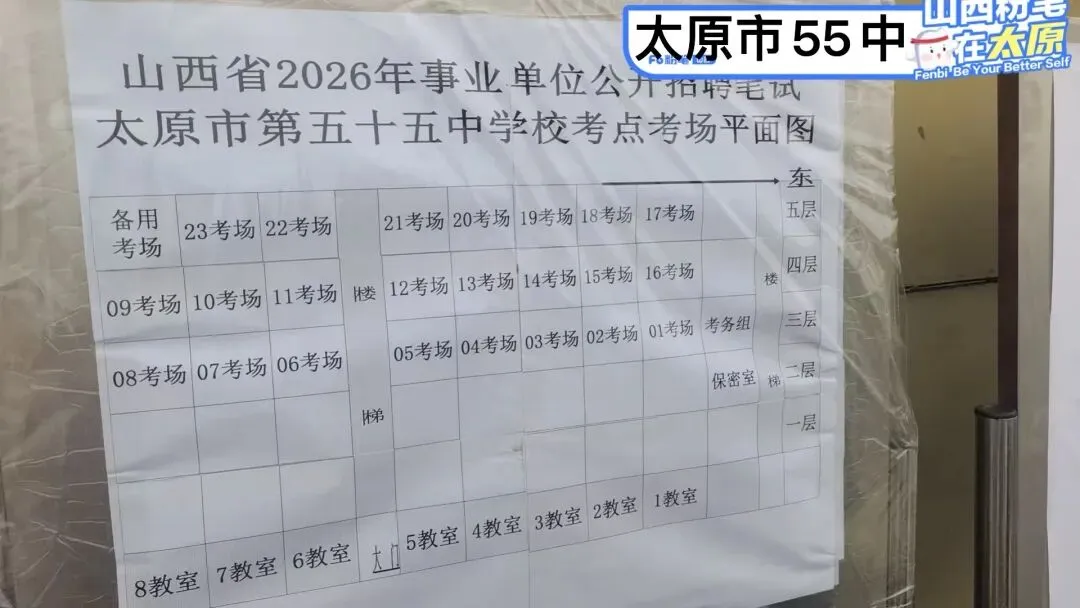 太原市55中
山西粉笔
在太原
Fenbi Be Your Better Self
山西省2026年事业单位公开招聘笔试
太原市第五十五中学校考点考场平面图
东
备用考场 23考场 22考场 21考场 20考场 19考场 18考场 17考场 五层
09考场 10考场 11考场 楼 12考场 13考场 14考场 15考场 16考场 楼 四层
08考场 07考场 06考场 05考场 04考场 03考场 02考场 01考场 考务组 三层
梯 保密室 梯 二层
一层
8教室 7教室 6教室 大门 5教室 4教室 3教室 2教室 1教室